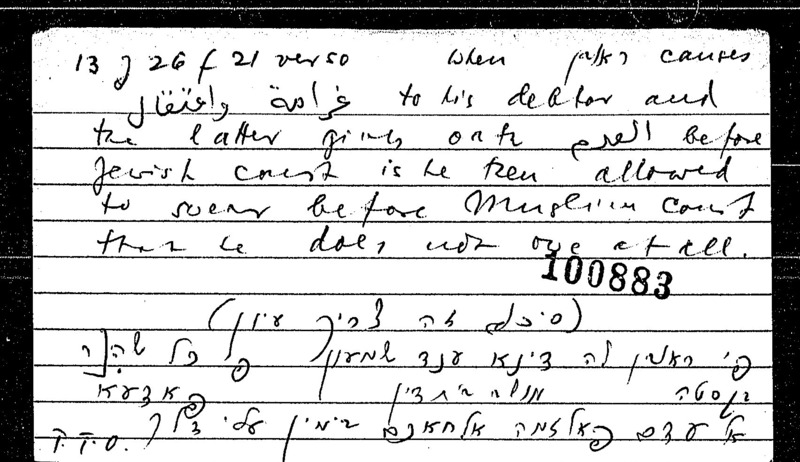 13 J 26 f 21 verso When ראובן causes
غرامة واعتقال to his debtor and
the latter gives oath العدم before
Jewish court is he then allowed
to swear before Muslim court
that he does not owe at all.
100883
(סיכול זה צריך עיון)
פי ראובן לה דינא ענד שמעון פ כל
בית דין פאדעא
אל עדם פאלזמה אלחאכם בימין עלי דלך